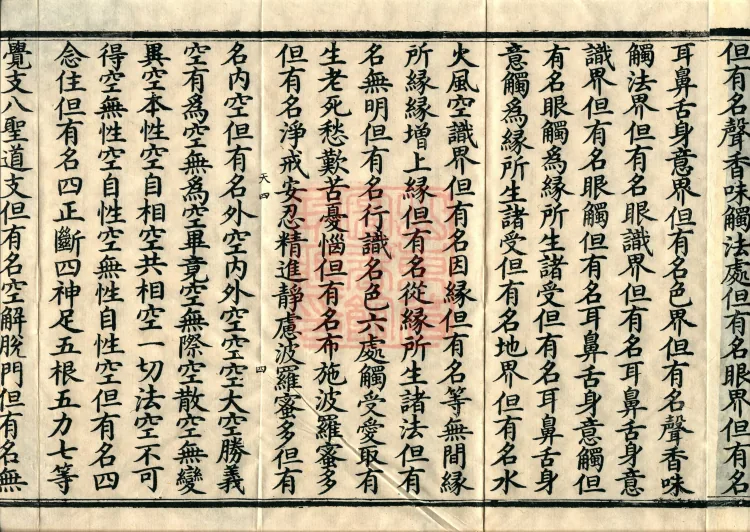 但有名聲香味觸法處但有名眼界但有名
耳鼻舌身意界但有名色界但有名聲香味
觸法界但有名眼識界但有名耳鼻舌身意
識界但有名眼觸但有名耳鼻舌身意觸但
有名眼觸為緣所生諸受但有名耳鼻舌身
意觸為緣所生諸受但有名地界但有名水
火風空識界但有名因緣但有名等無間緣
所緣緣增上緣但有名從緣所生諸法但有
名無明但有名行識名色六處觸受愛取有
生老死愁歎苦憂惱但有名布施波羅蜜多
但有名淨戒安忍精進靜慮波羅蜜多但有
天四 四
名內空但有名外空內外空空空大空勝義
空有為空無為空畢竟空無際空散空無變
異空本性空自相空共相空一切法空不可
得空無性空自性空無性自性空但有名四
念住但有名四正斷四神足五根五力七等
覺支八聖道支但有名空解脫門但有名無